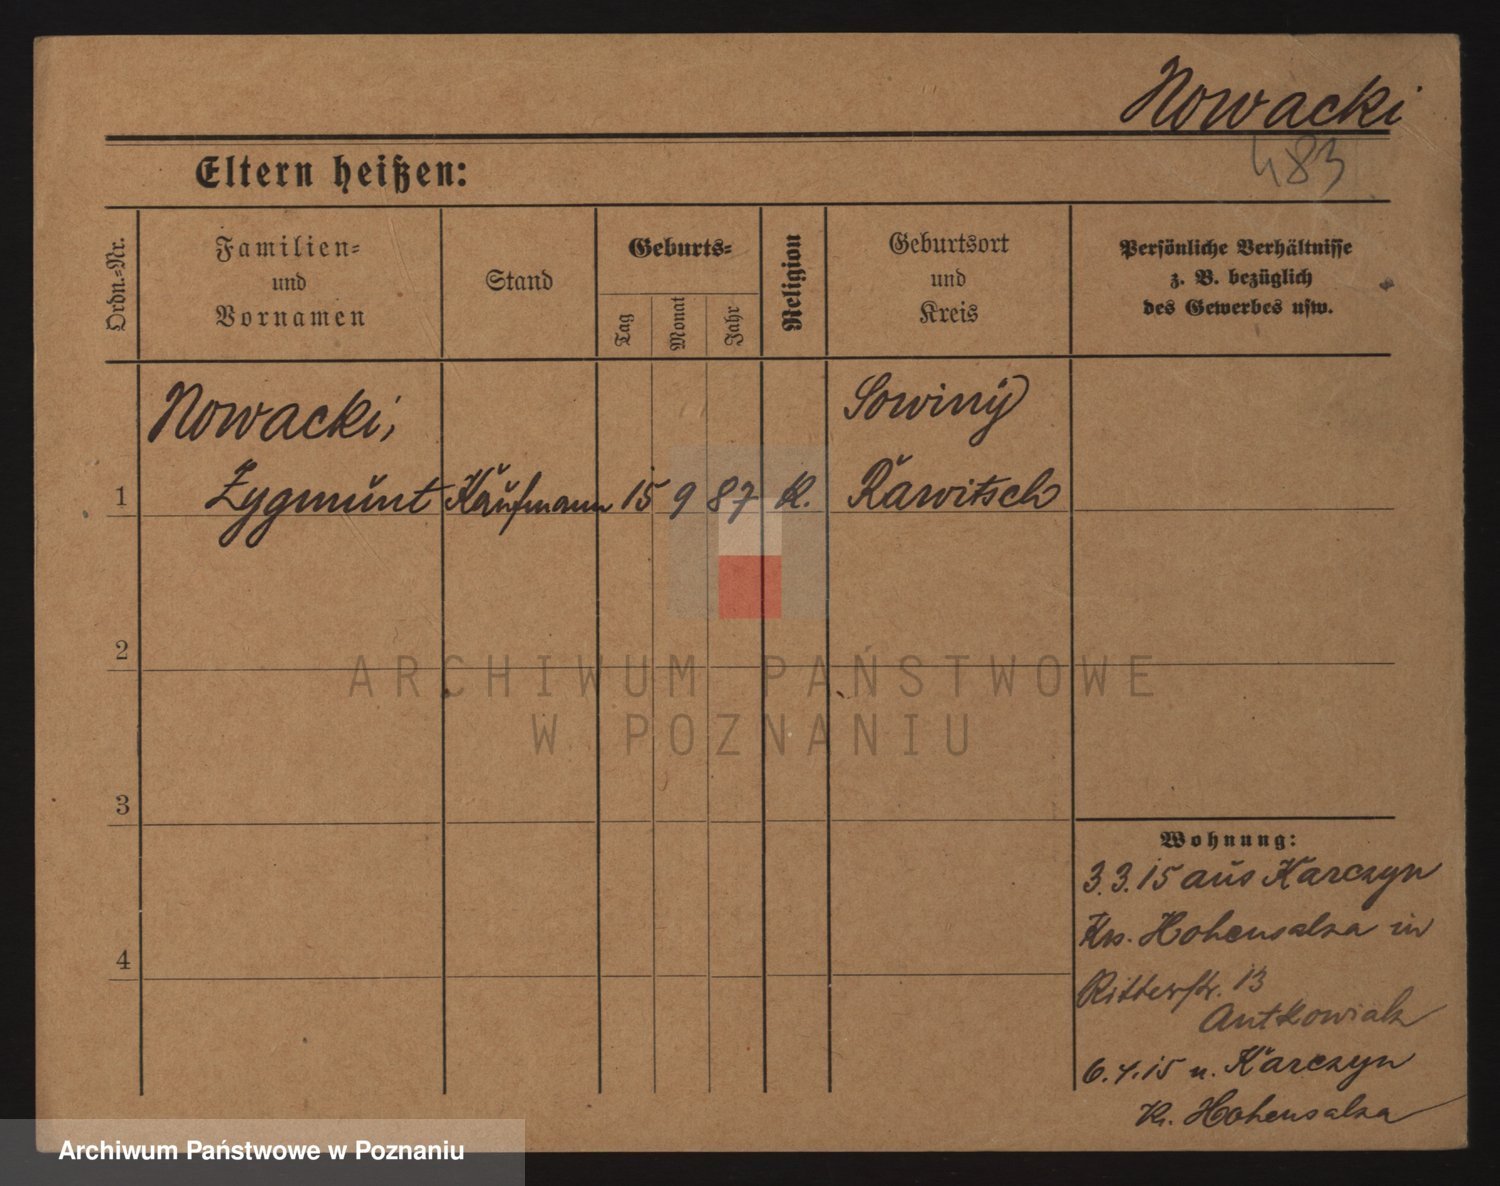 Nowacki
483
Eltern heißen:
Ordn.-Nr.
Familien-
und
Vornamen
Stand
Geburts-
Tag
Monat
Jahr
Religion
Geburtsort
und
Kreis
Persönliche Verhältnisse
z. B. bezüglich
des Gewerbes usw.
Nowacki,
Sowiny
1 Zygmunt Kaufmann 15 9 87 K. Rawitsch
2
ARCHIWUM PAŃSTWOWE
W POZNANIU
3
Wohnung:
3.3.15 aus Karczyn
Krs. Hohensalza in
4
Ritterstr. 13
Antkowiak
6.4.15 n. Karczyn
Kr. Hohensalza
Archiwum Państwowe w Poznaniu